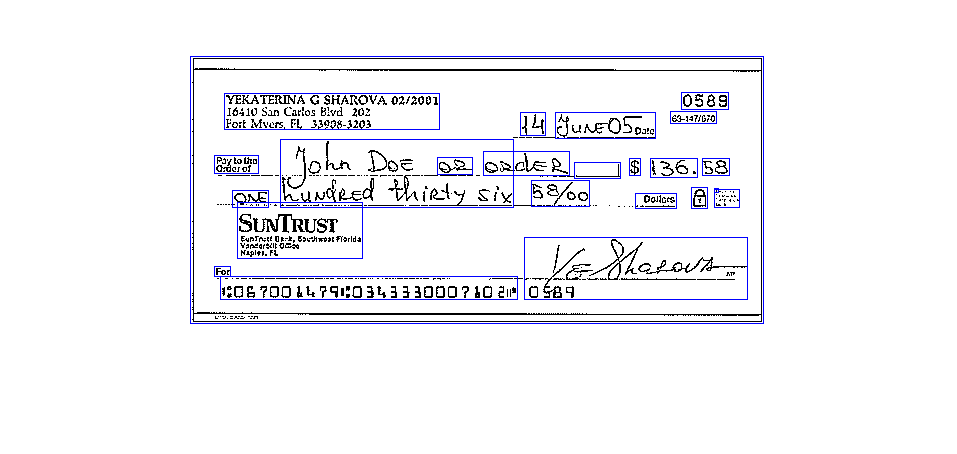 YEKATERINA G SHAROVA 02/2001
16410 San Carlos Blvd 202
Fort Myers, FL 33908-3203
0589
63-147/670
14 JUNE 05 Date
Pay to the Order of John DOE OR ORDER $ 136.58
ONE hUNDRED thirty six 58/00 Dollars
SUNTRUST
SunTrust Bank, Southwest Florida
Vanderbilt Office
Naples, FL
YE Sharova
For
MP
⑆067001479⑆0343330007102⑈ 0589